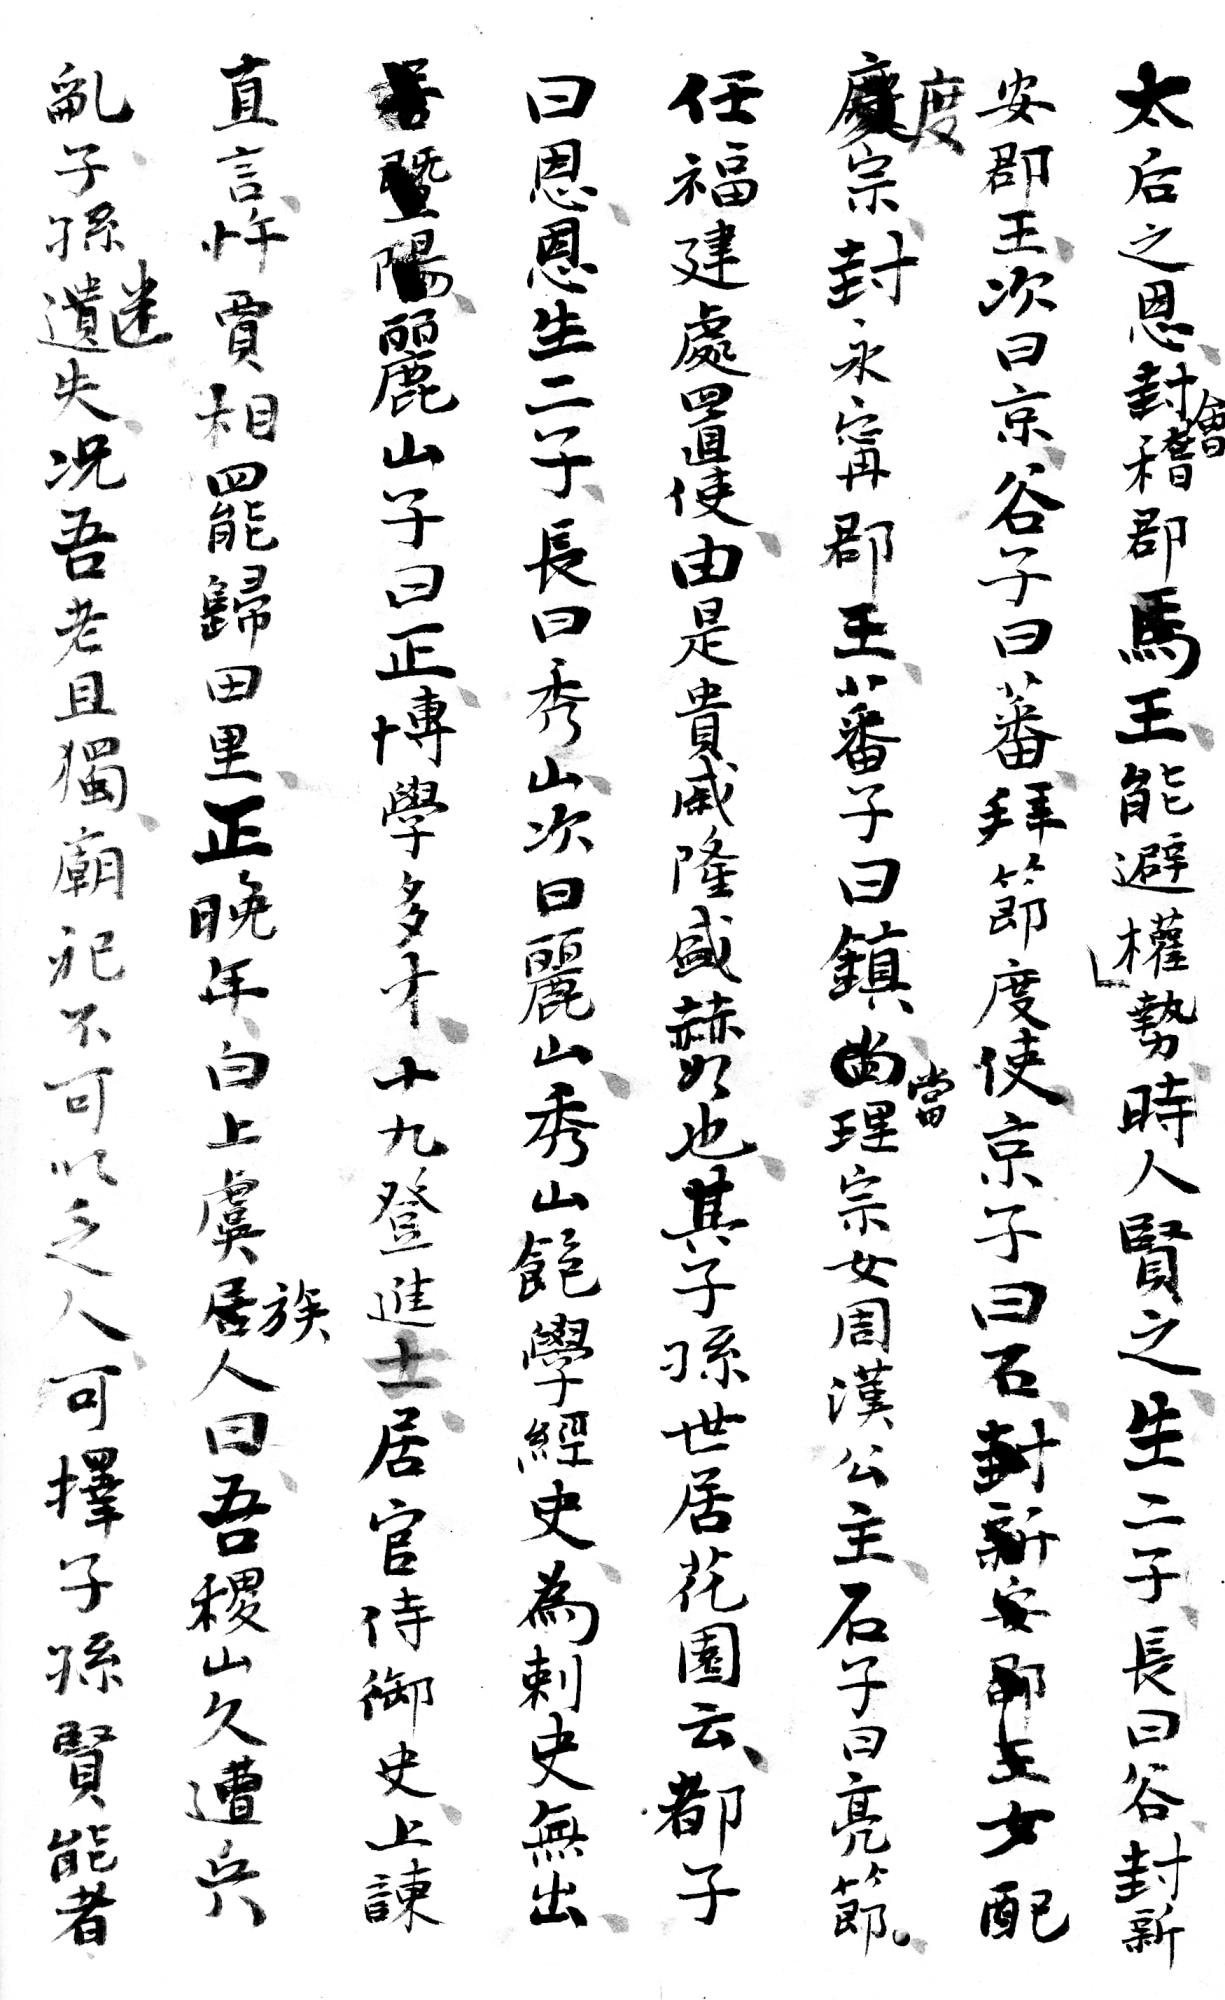 太后之恩封會稽郡馬王能避權勢時人賢之生二子長曰谷封新
安郡王次曰京谷子曰蕃拜節度使京子曰石封新安郡主女配
度宗封永甯郡王蕃子曰鎮尚當理宗女周漢公主石子曰亮節
任福建處置使由是貴戚隆盛赫如也其子孫世居花園云都子
曰恩恩生二子長曰秀山次曰麗山秀山飽學經史為刺史無出
暨陽麗山子曰正博學多才十九登進士居官侍御史上諫
直言忤賈相罷歸田里正晚年白上虞居族人曰吾稷山久遭兵
亂子孫遺迷失况吾老且獨廟祀不可以乏人可擇子孫賢能者